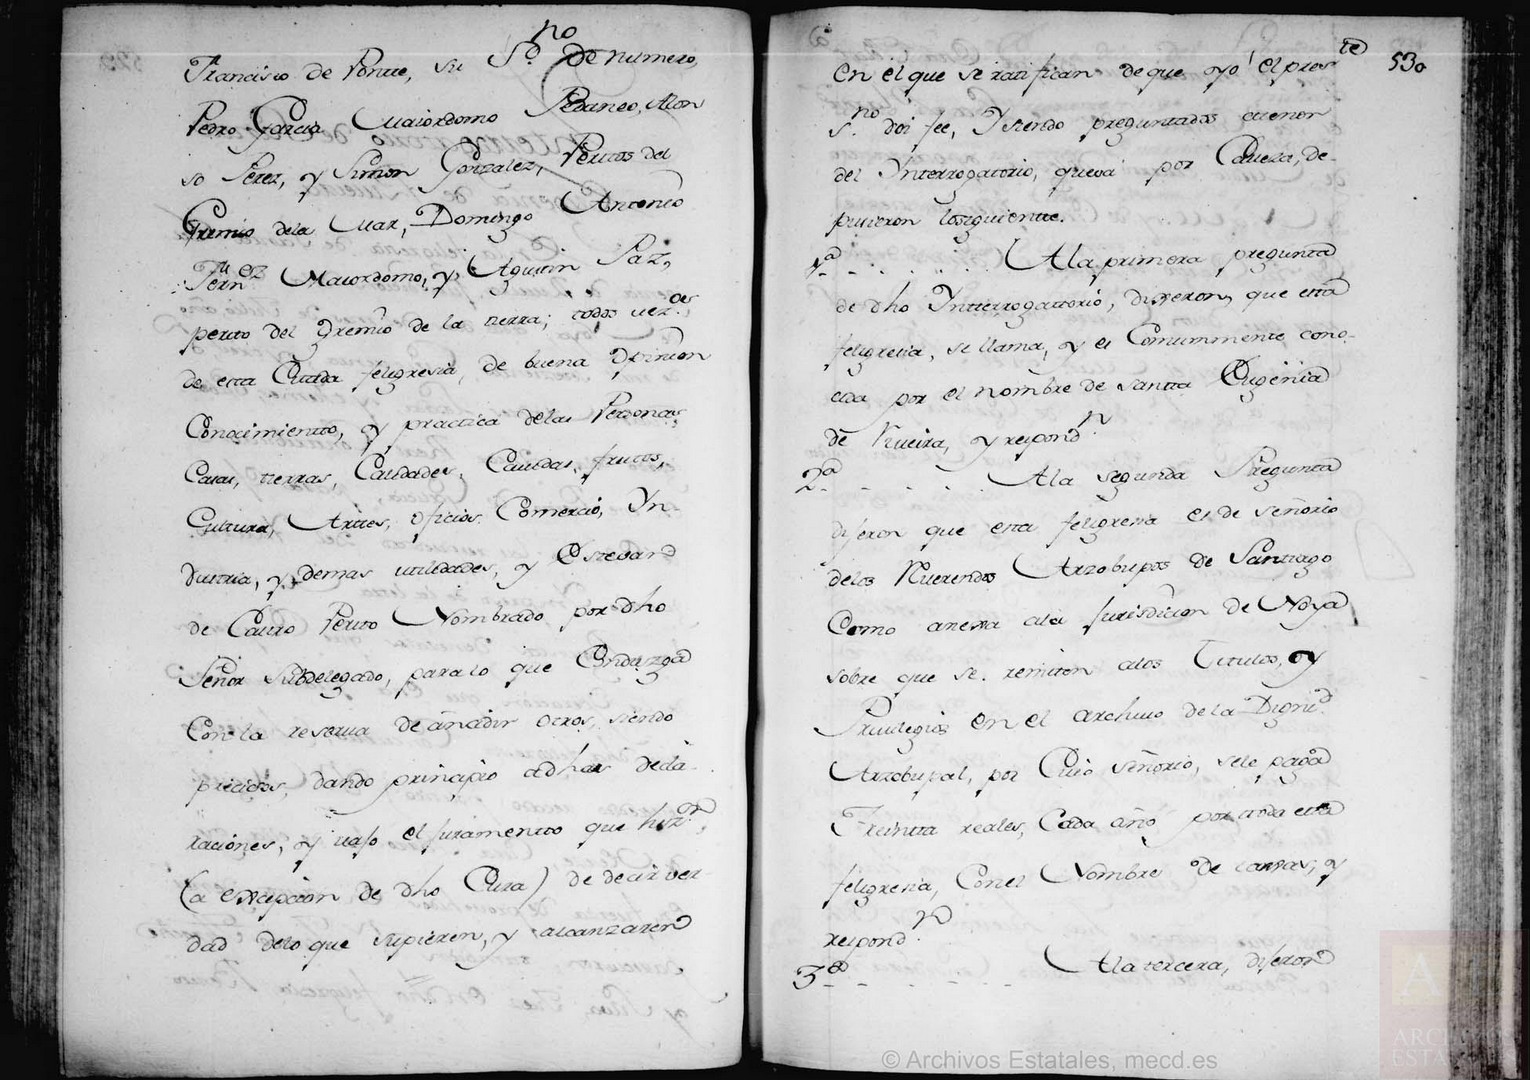 Francisco de Ponte, su Sº. no de numero,
Pedro Garcia Maiordomo Pedaneo, Alon
so Perez, y Simon Gonzalez, Peritos del
Gremio dela Mar, Domingo Antonio
Fernz Maiordomo, y Agustin Paz,
perito del Gremio de la tierra; todos vezos
de esta Citada feligresia, de buena Opinion
Conocimientto, y practica delas Personas,
Casas, tierras, Calidades, Cauidas, frutos,
Cultura, Arttes, oficios, Comercio, Yn
dustria, y demas utilidades, y Estevan
de Castro Perito Nombrado por dho
Señor Subdelegado, para lo que Conduzga
Con la reserva de añadir otros, siendo
precisos, dando principio adhas decla-
raciones, y vajo el Juramentto que hizn.on,
(a excepcion de dho Cura) de decir ver
dad delo que supieren, y alcanzaren
530
en el que se ratifican de que yo el preste
s.no doi fee, Y siendo preguntados attenor
del Ynterrogatorio, queva por Caveza, de-
pusieron losiguiente.
1ª - - - - - - A la primera pregunta
de dho Ynterrogattorio, dixeron, que esta
feligresia, se llama, y es Comunmente cono-
cida por el nombre de Santta Eugenia
de Riveira, y respondn.
2ª - - - - - Ala segunda Pregunta
dijeron que esta feligresia es de señorio
delos Rverendos Arzobispos de Santtiago
Como anexa ala Jurisdicion de Noya,
sobre que se remiten alos Titulos, y
Privilegios en el archivo dela Dignid.
Arzobispal, por Cuio señorio, sele paga
Treintta reales, Cada año por toda esta
feligresia, Conel Nombre de carnes, y
respondn.
3ª - - - - - - - Ala tercera, dijeron
© Archivos Estatales, mecd.es
A
ARCHIVOS
ESTATALES